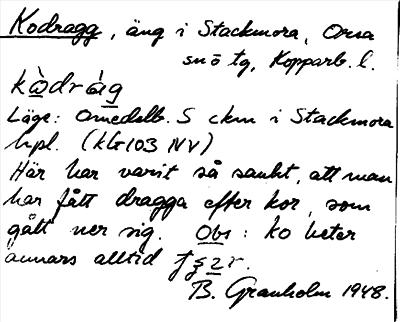 Kodragg, äng i Stackmora, Orsa
sn ö tg, Kopparb. l.
kòdràg
Läge: Omedelb. S ckm i Stackmora
hpl. (kbl 103 NV)
Här har varit så sankt, att man
har fått dragga efter kor, som
gått ner sig. Obs: ko heter
annars alltid
B. Granholm 1948.